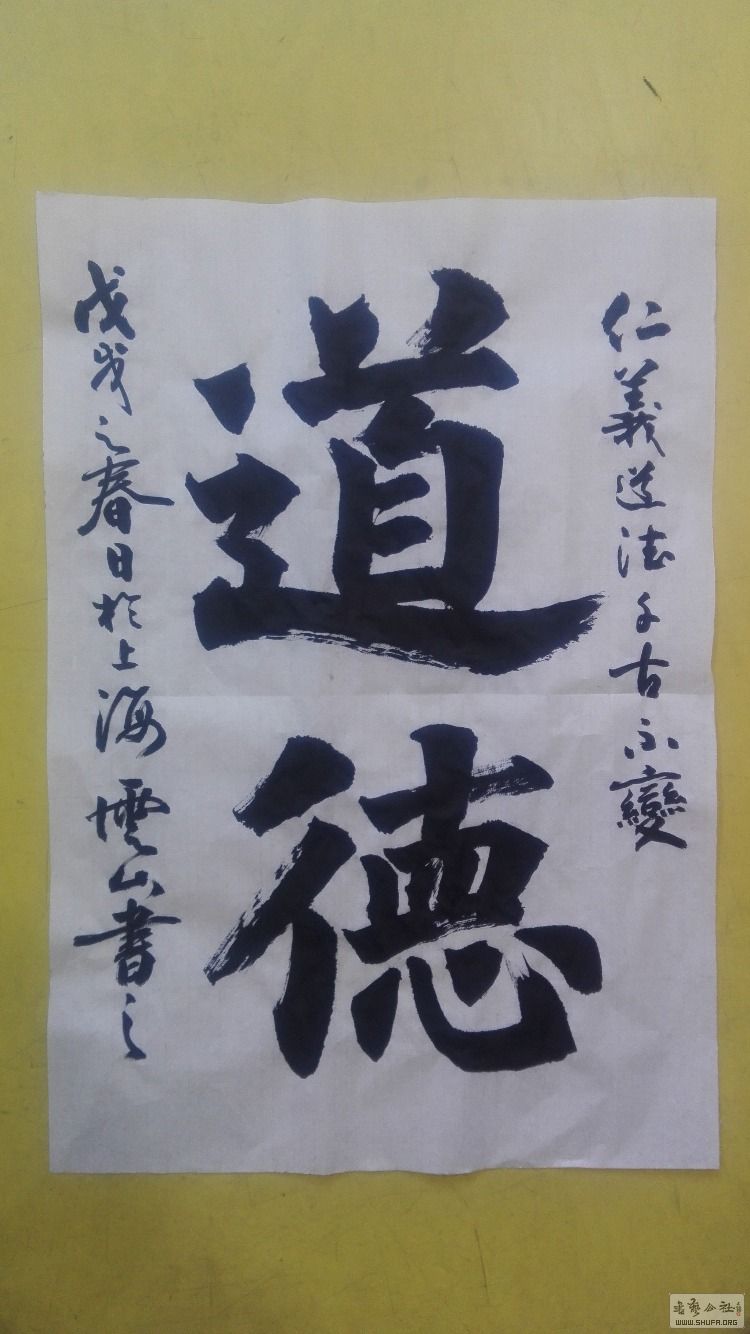 仁義道法千古不變
道德
戊戌之春日於上海雲山書之
書藝公社
WWW.SHUFA.ORG